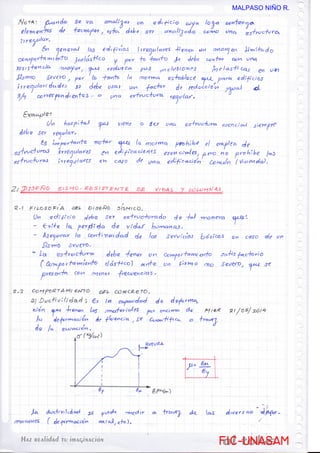 MALPASO NIÑO R.
NOTA: Cuando se va analizar un edificio cuya losa contenga
elementos de tecnopor, esta debe ser analizada como una estructura
irregular.
En general los edificios irregulares tienen un margen limitado
comportamiento inelástico y por lo tanto se debe contar con una
resistencia mayor, que reduzca sus incursiones inelásticas en un
sismo severo, por lo tanto la norma establece que para edificios
irregularidades se debe usar un factor de reducción igual al
3/4 correspondiente a una estructura regular.
Example:
Un hospital que viene a ser una estructura esencial siempre
debe ser regular.
Es importante notar que la norma prohibe el empleo de
estructuras irregulares en edificaciones esenciales, pero no prohibe las
estructuras irregulares en caso de una edificación común (vivienda).
2: DISEÑO SISMO-RESISTENTE DE VIGAS Y COLUMNAS.
2.1 FILOSOFIA DEL DISEÑO SISMICO.
Un edificio debe ser estructurado de tal manera que:
- Evite la perdida de vidas humanas.
- Asegurar la continuidad de los servicios básicos en caso de un
sismo severo.
- La estructura debe tener un comportamiento satisfactorio
(comportamiento elástico) ante un sismo no severo, que se
presenta con mayor frecuencia.
2.2 COMPORTAMIENTO DEL CONCRETO.
a) Ductilidad: Es la capacidad de deforma-
ción que tienen los materiales por encima de MIER 21/05/2014
la deformación de fluencia, se cuantifica a través
de la ecuación.
σ (kg/cm²)
ROTURA
εy
εu
μ = εu/εy
La ductilidad se puede medir a través de las diversas
maneras (deformación axial, etc).
Haz realidad tu imaginación
FIC-UNASAM